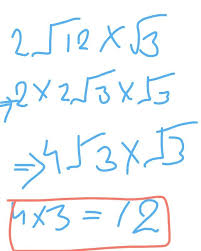 2√12 × √3
⇒ 2 × 2√3 × √3
⇒ 4√3 × √3
4×3 = 12